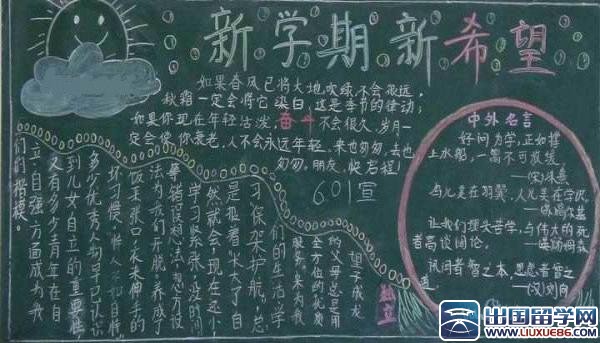 新学期新希望
如果春风已将大地吹绿不会很远,
秋霜一定会将它染白,这是季节的律动;
如果你现在年轻活泼,奋斗不会很久,岁月一
定会使你衰老,人不会永远年轻.来也匆匆,去也
匆匆。朋友,快启程!
601宣
中外名言
好问为学,正如撑
上水船,一篙不可放缓。
——(宋)朱熹
鸟儿美在羽翼,人儿美在学识。
让我们埋头苦学,与伟大的死
者高谈阔论。
讯问者智之本,思虑者智之
道 ——(汉)刘向
独立
望子成龙
的父母总是用
全方位的
服务,来为我
们的生活、学
习保驾护航,总
是抱着“长大了自
然就会,现在还小,
学习紧张,没时间”
等错误想法,想方设
法为我们开脱,养成了
饭来张口衣来伸手的
坏习惯,
多少优秀人物早已认识
到儿女自立的重要性,
又有多少青年在自
立、自强方面成为我
们的楷模。
出国留学网
WWW.LIUXUE86.COM